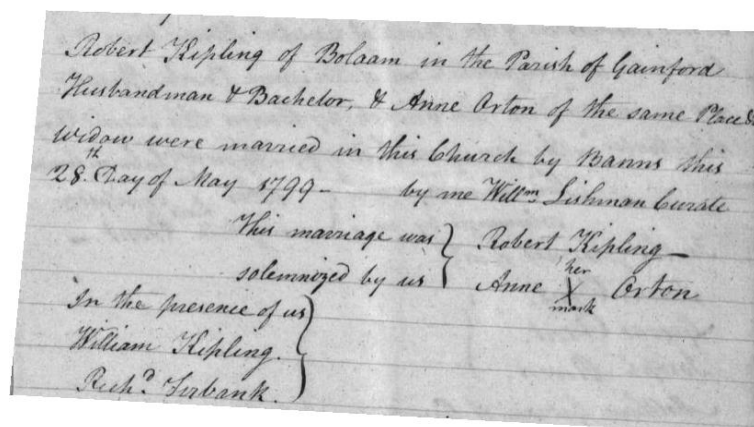 Robert Kipling of Bolaam in the Parish of Gainford
Husbandman & Bachelor, & Anne Orton of the same Place &
Widow were married in this Church by Banns this
28.th Day of May 1799 – by me Willm Lishman Curate
This marriage was } Robert Kipling
solemnized by us } Anne her X mark Orton
In the presence of us }
William Kipling.
Richd. Firbank.